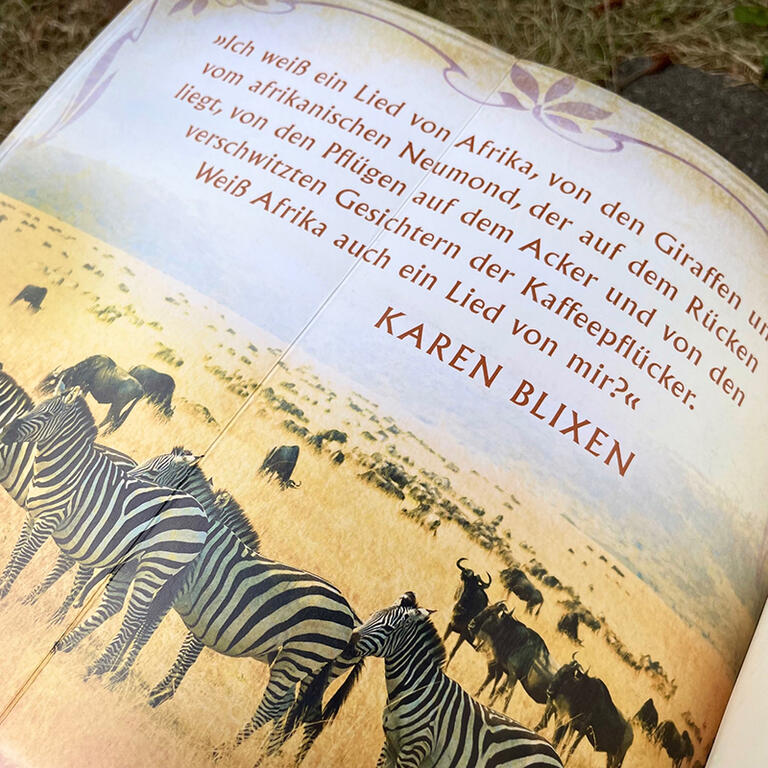 »Ich weiß ein Lied von Afrika, von den Giraffen un
vom afrikanischen Neumond, der auf dem Rücken
liegt, von den Pflügen auf dem Acker und von den
verschwitzten Gesichtern der Kaffeepflücker.
Weiß Afrika auch ein Lied von mir?«
KAREN BLIXEN